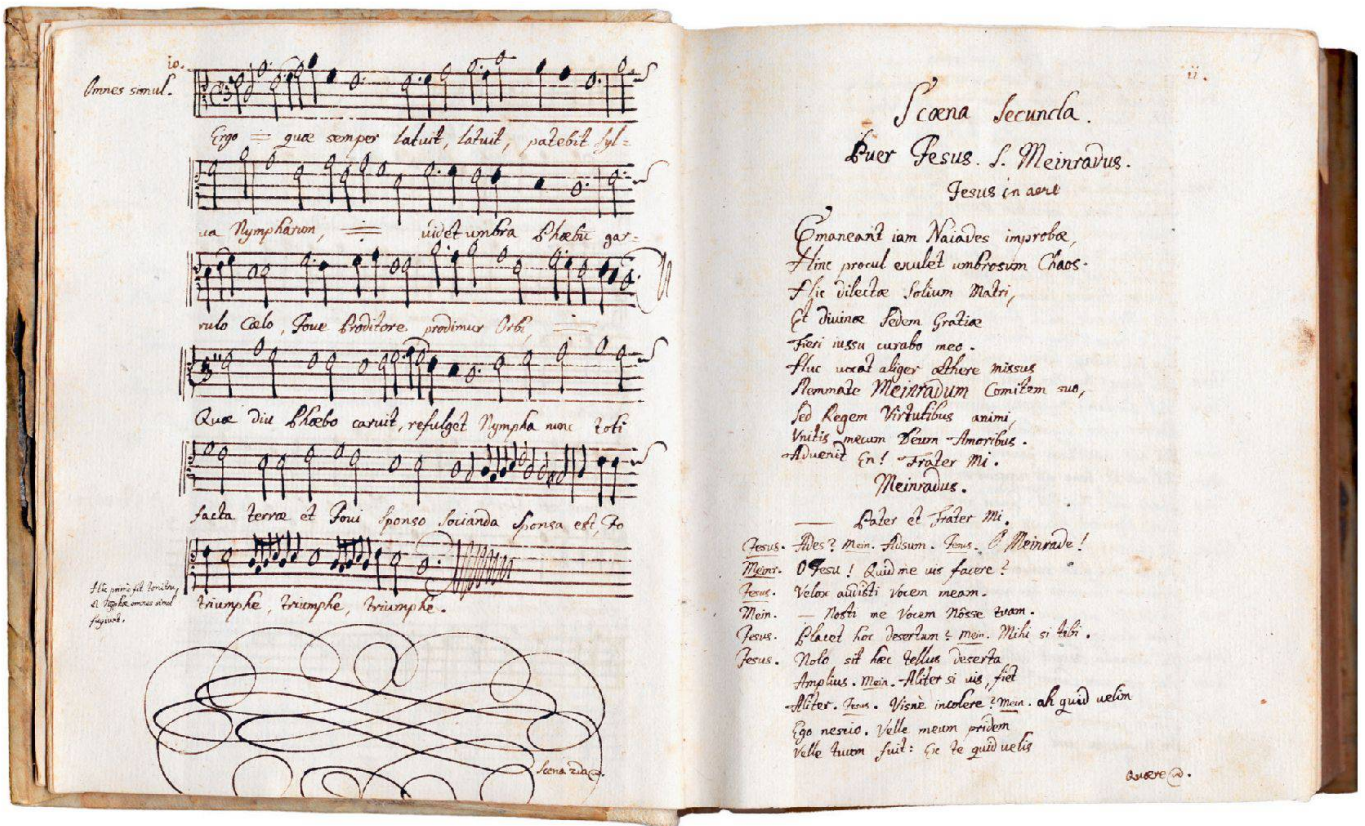 10.
Omnes simul.
Ergo = quæ semper latuit, latuit, patebit syl=
va Nympharum, = videt umbra Phæbū gar=
rulo Cœlo, Jove Proditore prodimur Orbi =
Quæ diu Phæbo caruit, refulget Nympha nunc toti
facta terræ et Jovi sponso socianda sponsa est, Jo
triumphe, triumphe, triumphe.
omnes simul
fugiunt.
Scena 2da
11.
Scœna Secunda.
Puer Jesus. S. Meinradus.
Jesus in aere
Emaneant iam Naiades improbæ,
Hinc procul exulet umbrosum Chaos.
Hic dilectæ Solium Matri,
Et divinæ Sedem Gratiæ
Fieri iussu curabo meo.
Huc vocat aliger æthere missus
Stemmate Meinradum Comitem suo,
Sed Regem Virtutibus animi,
Unitis mecum Deum Amoribus.
Advenit En! Frater Mi.
Meinradus.
— Pater et Frater Mi.
Jesus. Ades? Mein. Adsum. Jesus. O Meinrade!
Meinr. O Jesu! Quid me vis facere?
Jesus. Velox audisti vocem meam.
Mein. — Nosti me Vocem Nôsse tuam.
Jesus. Placet hoc desertum? Mein. Mihi si tibi.
Jesus. Nolo sit hæc tellus deserta
Amplius. Mein. Aliter si vis, fiet
Aliter. Jesus. Visnè incolere? Mein. ah quid velim
Ego nescio. Velle meum pridem
Velle tuum fuit: Ex te quid velis
Quære